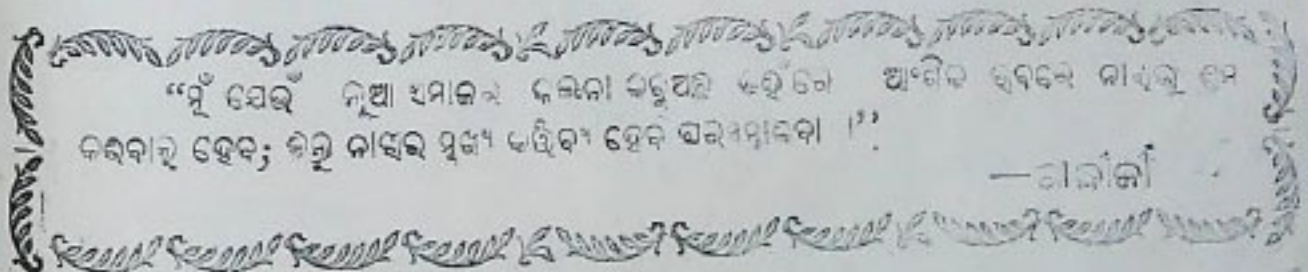 “ମୁଁ ଯେଉଁ ନୂଆ ସମାଜର କଳ୍ପନା କରୁଅଛି ସେଥିରେ ଆଂଶିକ ନାରୀକୁ ଶ୍ରମ
କରିବାକୁ ହେବ; କିନ୍ତୁ ନାରୀର ମୁଖ୍ୟ କର୍ତ୍ତବ୍ୟ ହେବ ଘରସମ୍ଭାଳିବା ।”
—ଗାନ୍ଧୀଜୀ